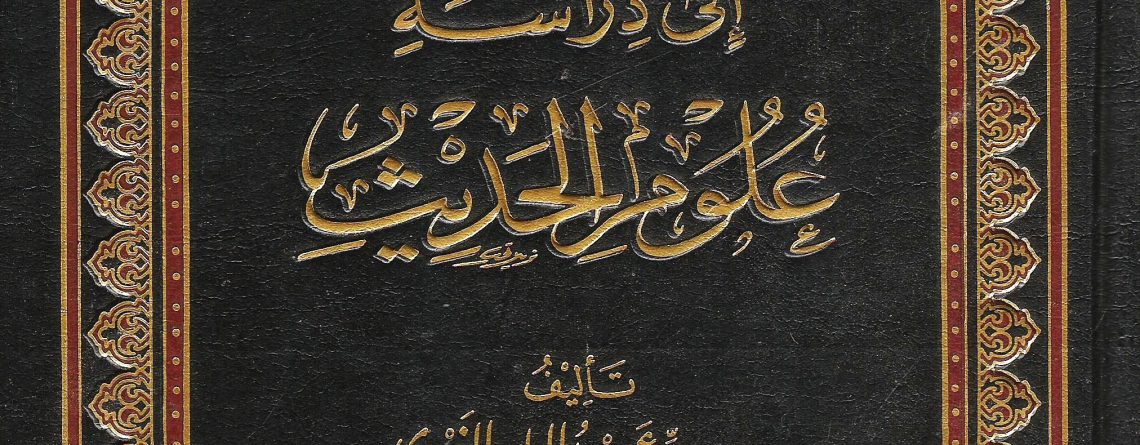 إِلَى دِرَاسَةِ
عُلُوْمِ الْحَدِيْثِ
تَأْلِيْفُ